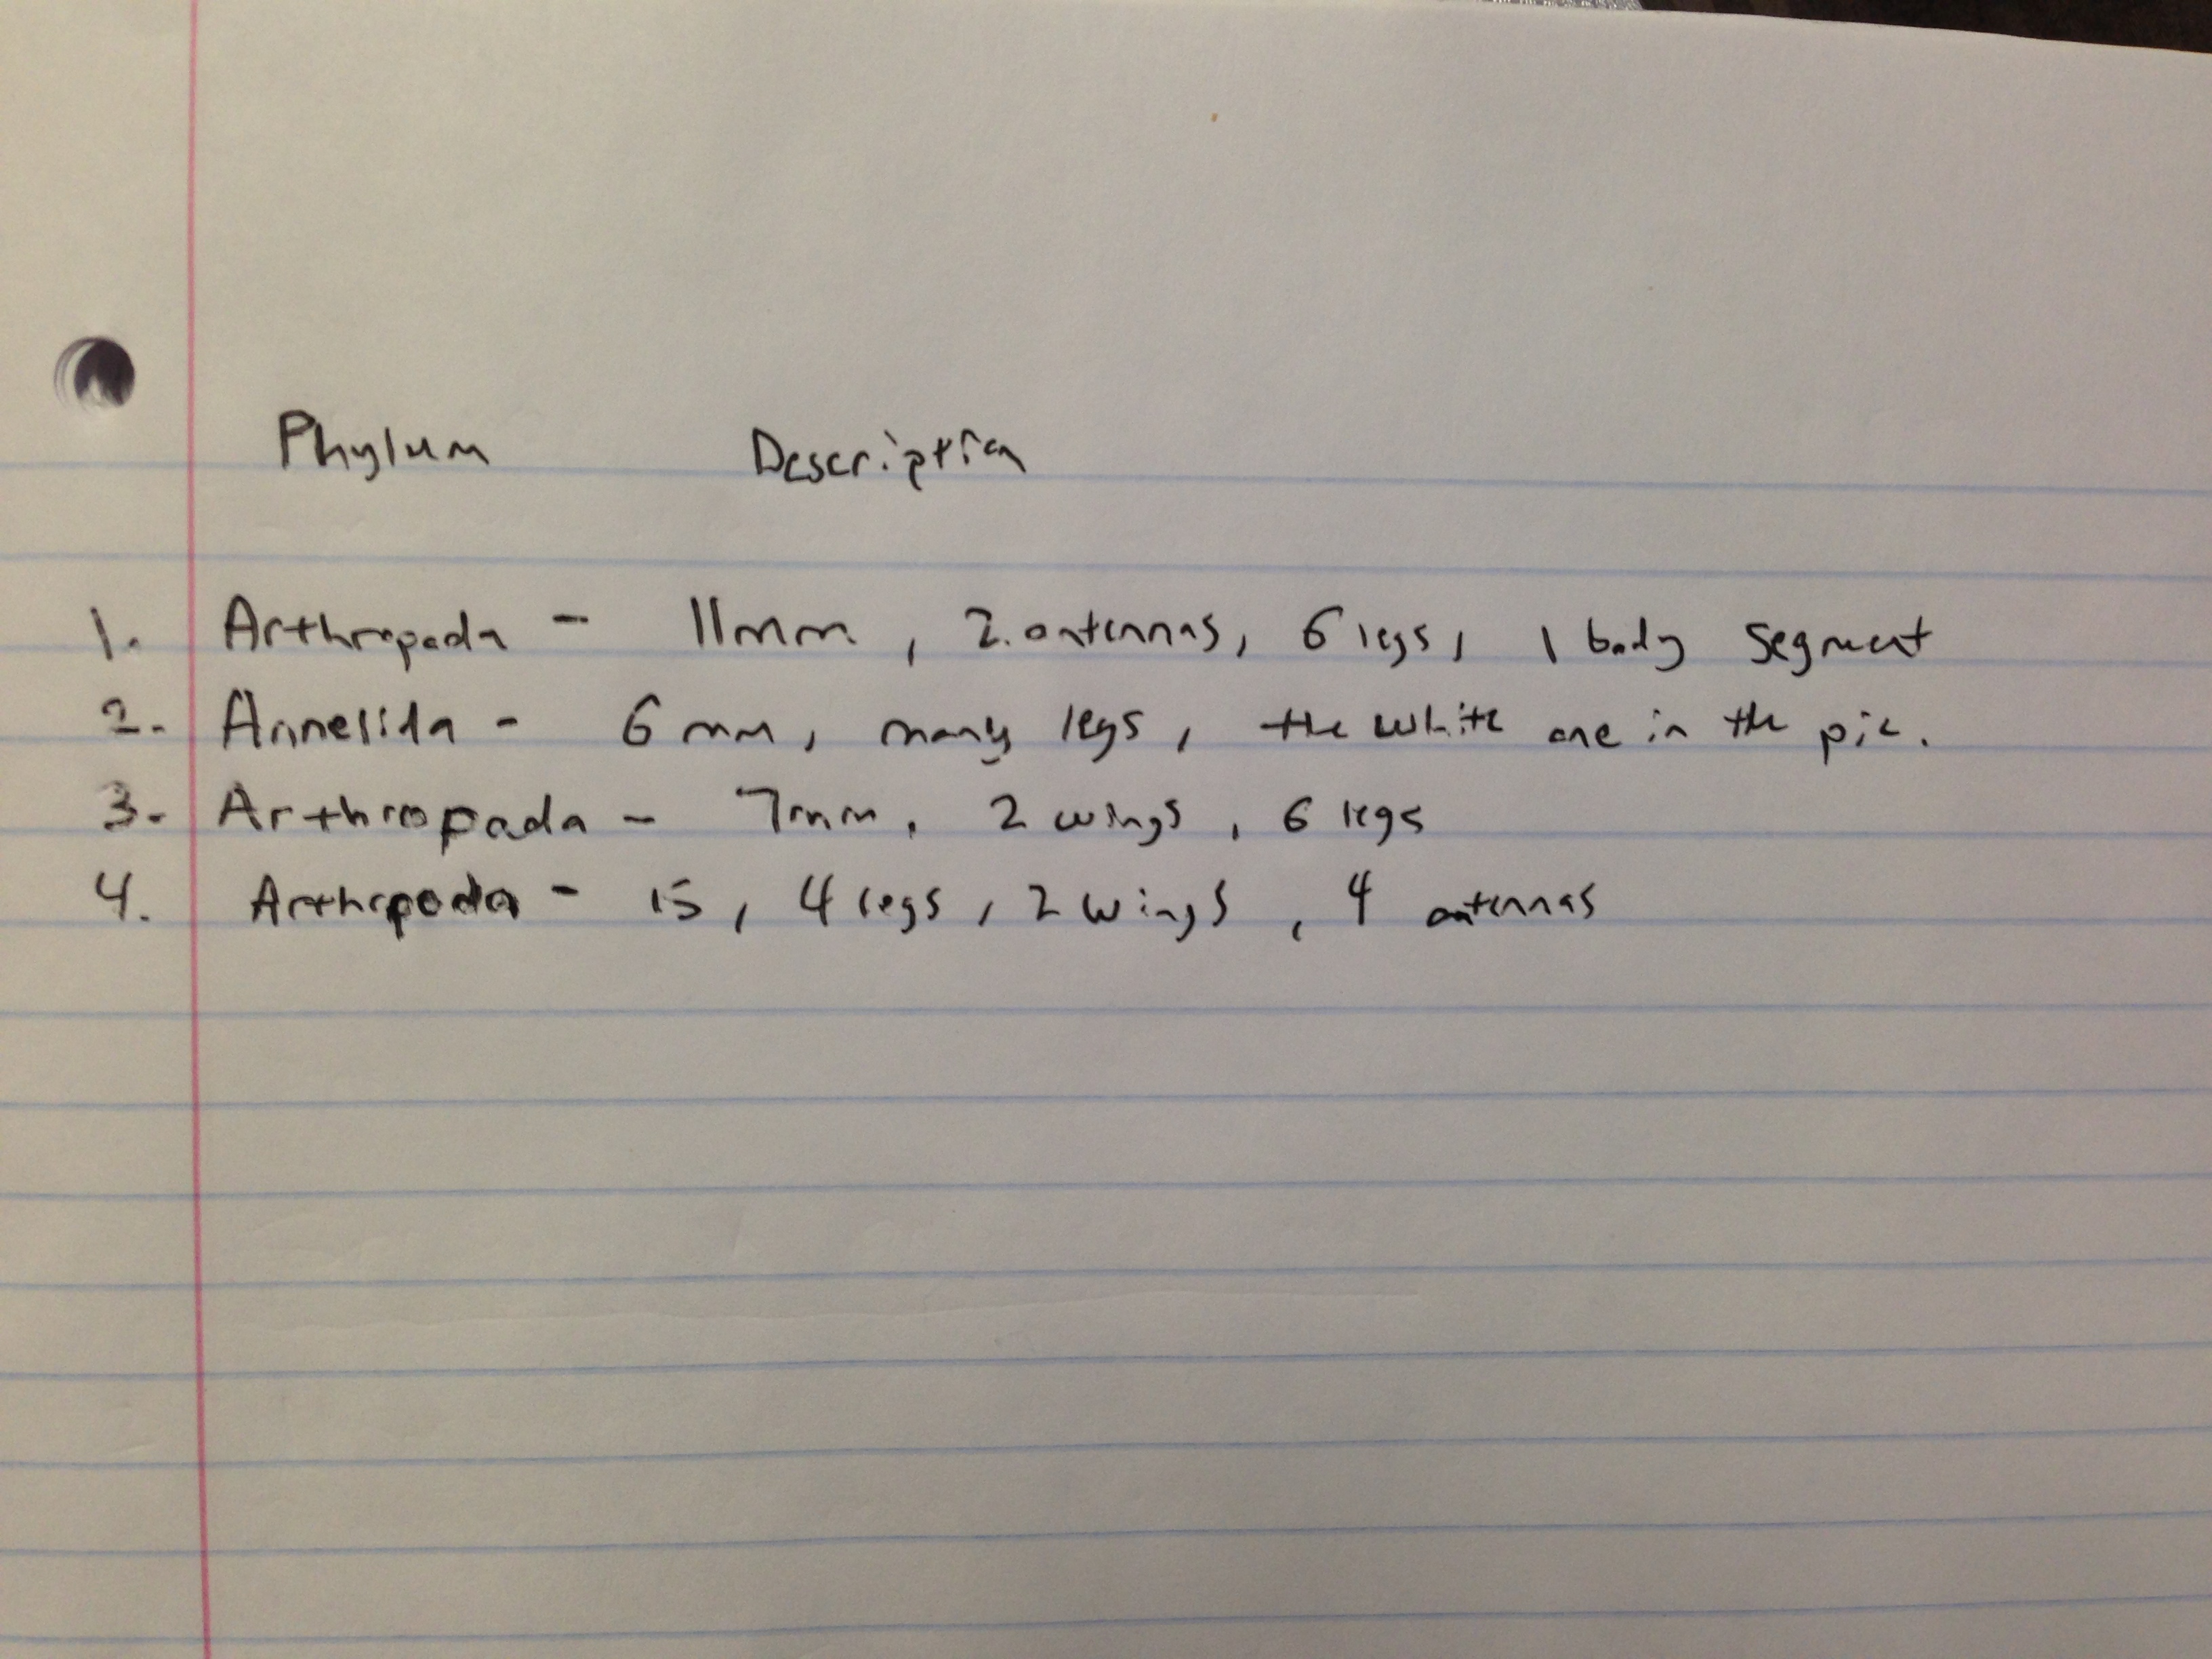 Phylum Description
1. Arthropada - 11mm, 2 antennas, 6 legs, 1 body segment
2. Annelida - 6 mm, many legs, the white one in the pic.
3. Arthropada - 7mm, 2 wings, 6 legs
4. Arthropoda - 15, 4 legs, 2 wings, 4 antennas